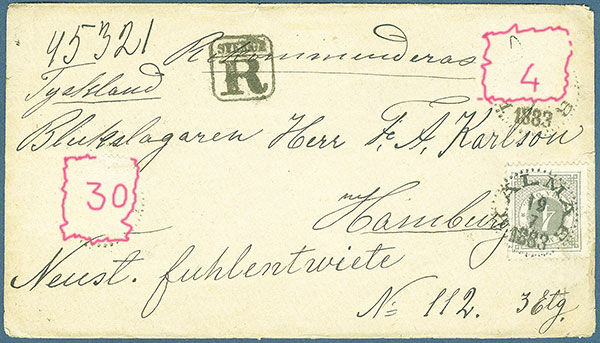 45321
Rekommenderas
SVERIGE
R
4
Tyskland
1883
Bleckslagaren Herr F. A. Karlson
KALMAR
19
7
1883
30
Hamburg
Neust. fuhlentwiete
No 112. 3 Etg.